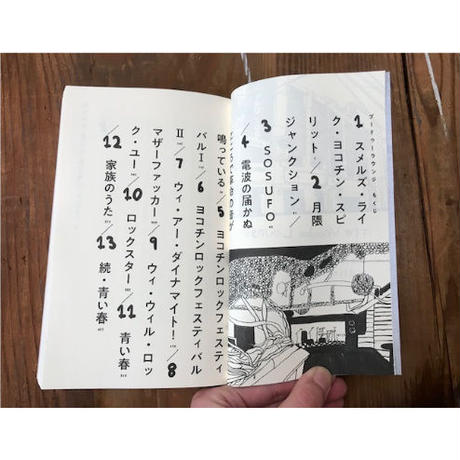 ブードゥーラウンジ もくじ
1 スメルズ・ライ
ク・ヨコチン・スピ
リット/2 月隈
ジャンクション/
3 SOSUFO
/4 電波の届かぬ
の音が
鳴っている/5 ヨコチンロックフェスティ
バルⅠ/6 ヨコチンロックフェスティバル
Ⅱ/7 ウィ・アー・ダイナマイト!/8
マザーファッカー/9 ウィ・ウィル・ロッ
ク・ユー/10 ロックスター/11 青い春
/12 家族のうた/13 続・青い春